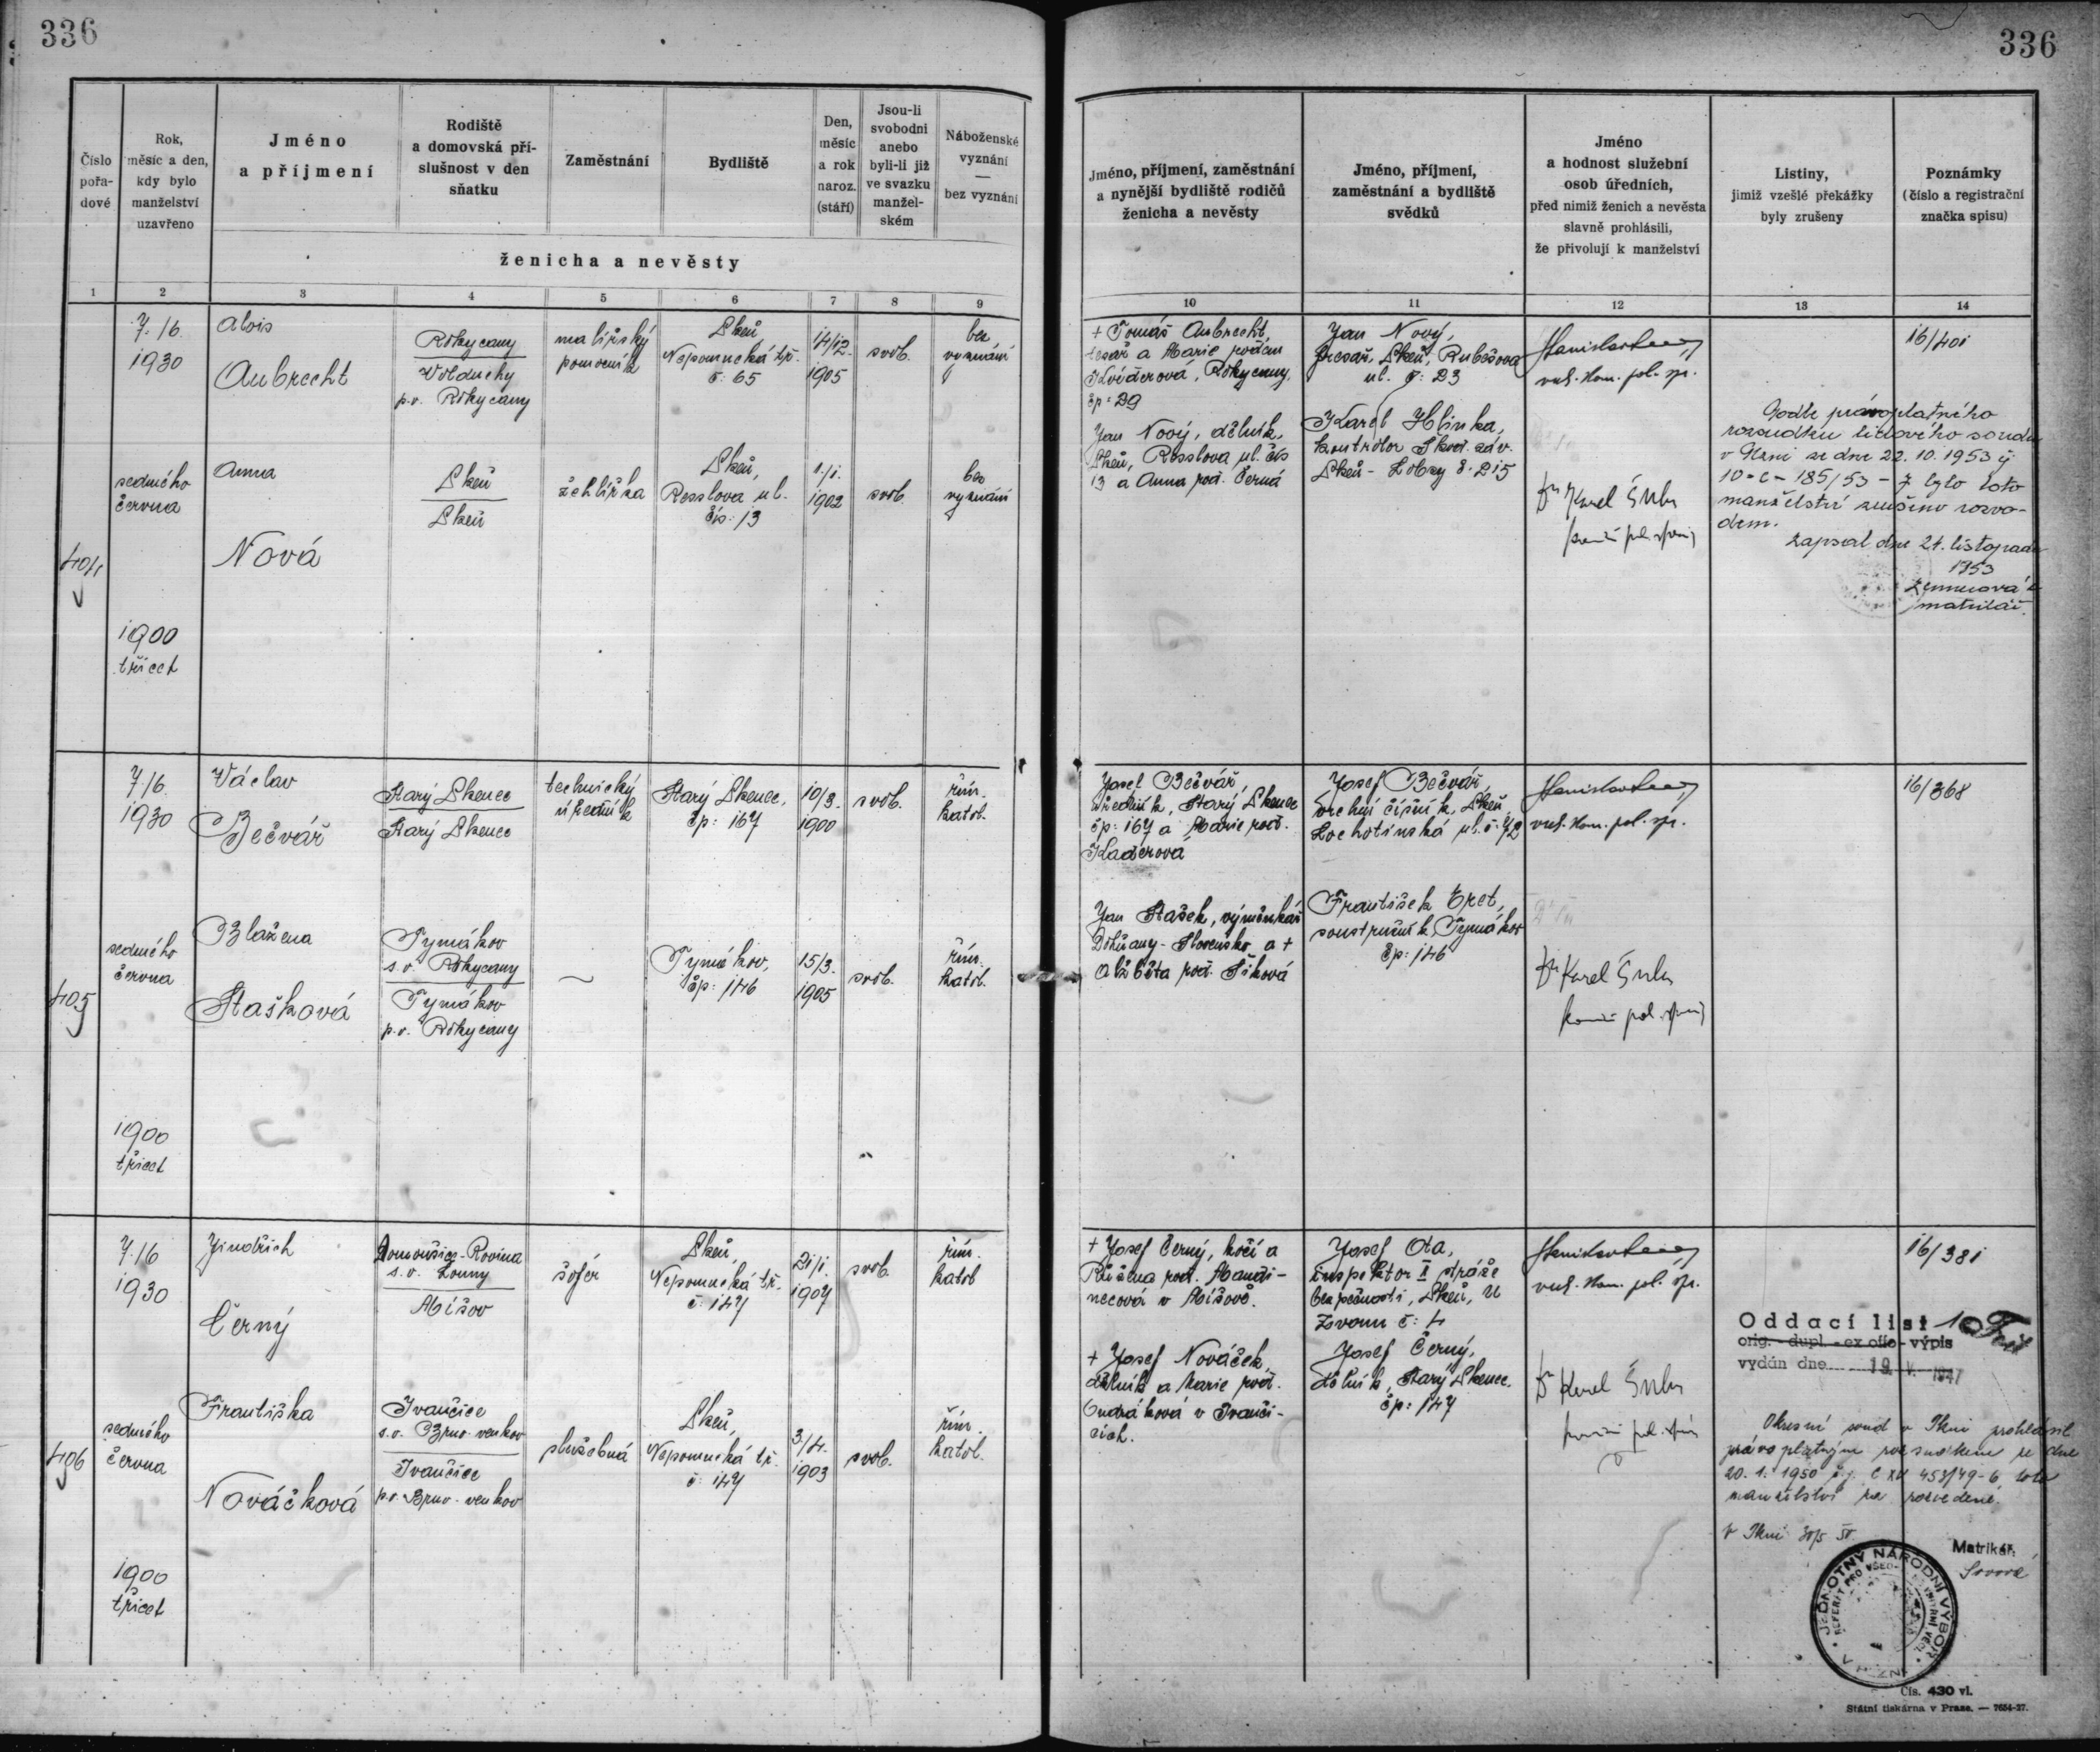 336
336
Číslo
pořa-
dové
Rok,
měsíc a den,
kdy bylo
manželství
uzavřeno
Jméno
a příjmení
Rodiště
a domovská pří-
slušnost v den
sňatku
Zaměstnání
Bydliště
Den,
měsíc
a rok
naroz.
(stáří)
Jsou-li
svobodni
anebo
byli-li již
ve svazku
manžel-
ském
Náboženské
vyznání
—
bez vyznání
ženicha a nevěsty
Jméno, příjmení, zaměstnání
a nynější bydliště rodičů
ženicha a nevěsty
Jméno, příjmení,
zaměstnání a bydliště
svědků
Jméno
a hodnost služební
osob úředních,
před nimiž ženich a nevěsta
slavně prohlásili,
že přivolují k manželství
Listiny,
jimiž vzešlé překážky
byly zrušeny
Poznámky
(číslo a registrační
značka spisu)
1 2 3 4 5 6 7 8 9
10 11 12 13 14
404
7./6.
1930
sedmého
června
1900
třicet
Alois
Aubrecht
Rokycany
Volduchy
p.o. Rokycany
malířský
pomocník
Plzeň
Nepomucká tř.
č: 65
14/12.
1905
svob.
bez
vyznání
Anna
Nová
Plzeň
Plzeň
žehlířka
Plzeň,
Resslova ul.
čís: 13
1./1.
1902
svob.
bez
vyznání
+ Tomáš Aubrecht,
tesař a Marie rozen
Kviderová, Rokycany,
čp: 29
Jan Nový, dělník,
Plzeň, Resslova ul. čís
13 a Anna roz. Černá
Jan Nový,
fresař, Plzeň, Rubešova
ul. č: 23
Karel Hlinka,
kontrolor Škod. záv.
Plzeň - Lobzy č: 215
vrch. kom. pol. spr.
Dr Karel
16/401
Podle právoplatného
rozsudku lidového soudu
v Plzni ze dne 22.10.1953 čj
10-C-185/53-7 bylo toto
manželství zrušeno rozvo-
dem.
Zapsal dne 24. listopadu
1953
matrikář.
405
7./6.
1930
sedmého
června
1900
třicet
Václav
Bečvář
Starý Plzenec
Starý Plzenec
technický
úředník
Starý Plzenec,
čp: 167
10/3.
1900
svob.
řím.
katol.
Blažena
Stašková
Tymákov
s.o. Rokycany
Tymákov
p.o. Rokycany
Tymákov,
čp: 146
15/3.
1905
svob.
řím.
katol.
Josef Bečvář,
úředník, Starý Plzenec
čp: 167 a Marie roz.
Kladerová
Jan Stašek, výměnkář
Dohňany - Slovensko a +
Alžběta roz. Šiková
Josef Bečvář,
vrchní číšník, Plzeň
Lochotínská ul. č. 72
František Eret,
soustružník, Tymákov
čp: 146
vrch. kom. pol. spr.
Dr Karel
16/368
406
7./6
1930
sedmého
června
1900
třicet
Jindřich
Černý
Domoušice - Rovina
s.o. Louny
Míšov
šofér
Plzeň,
Nepomucká tř.
č: 147
21/1.
1907
svob.
řím.
katol
Františka
Nováčková
Ivančice
s.o. Brno-venkov
Ivančice
p.o. Brno-venkov
služebná
Plzeň,
Nepomucká tř.
č: 147
3./4.
1903
svob.
řím.
katol.
+ Josef Černý, kočí a
Růžena roz. Mandi-
necová v Míšově.
+ Josef Nováček,
dělník a Marie roz.
Ondráková v Ivanči-
cích.
Josef Ota,
inspektor II stráže
bezpečnosti, Plzeň, U
Zvonu č: 4
Josef Černý,
dělník, Starý Plzenec.
čp: 147
vrch. kom. pol. spr.
Dr Karel
16/381
Oddací list
orig. - dupl. - ex offo - výpis
vydán dne 19. V. 1947
Okresní soud v Plzni prohlásil
právoplatným rozsudkem ze dne
20. 1. 1950 č.j. C XV 453/49-6 toto
manželství za rozvedené.
V Plzni 30/5 50
Matrikář:
JEDNOTNÝ NÁRODNÍ VÝBOR
REFERÁT PRO VŠEO
VNITŘNÍ VĚCI
Čís. 430 vl.
Státní tiskárna v Praze. — 7654-27.